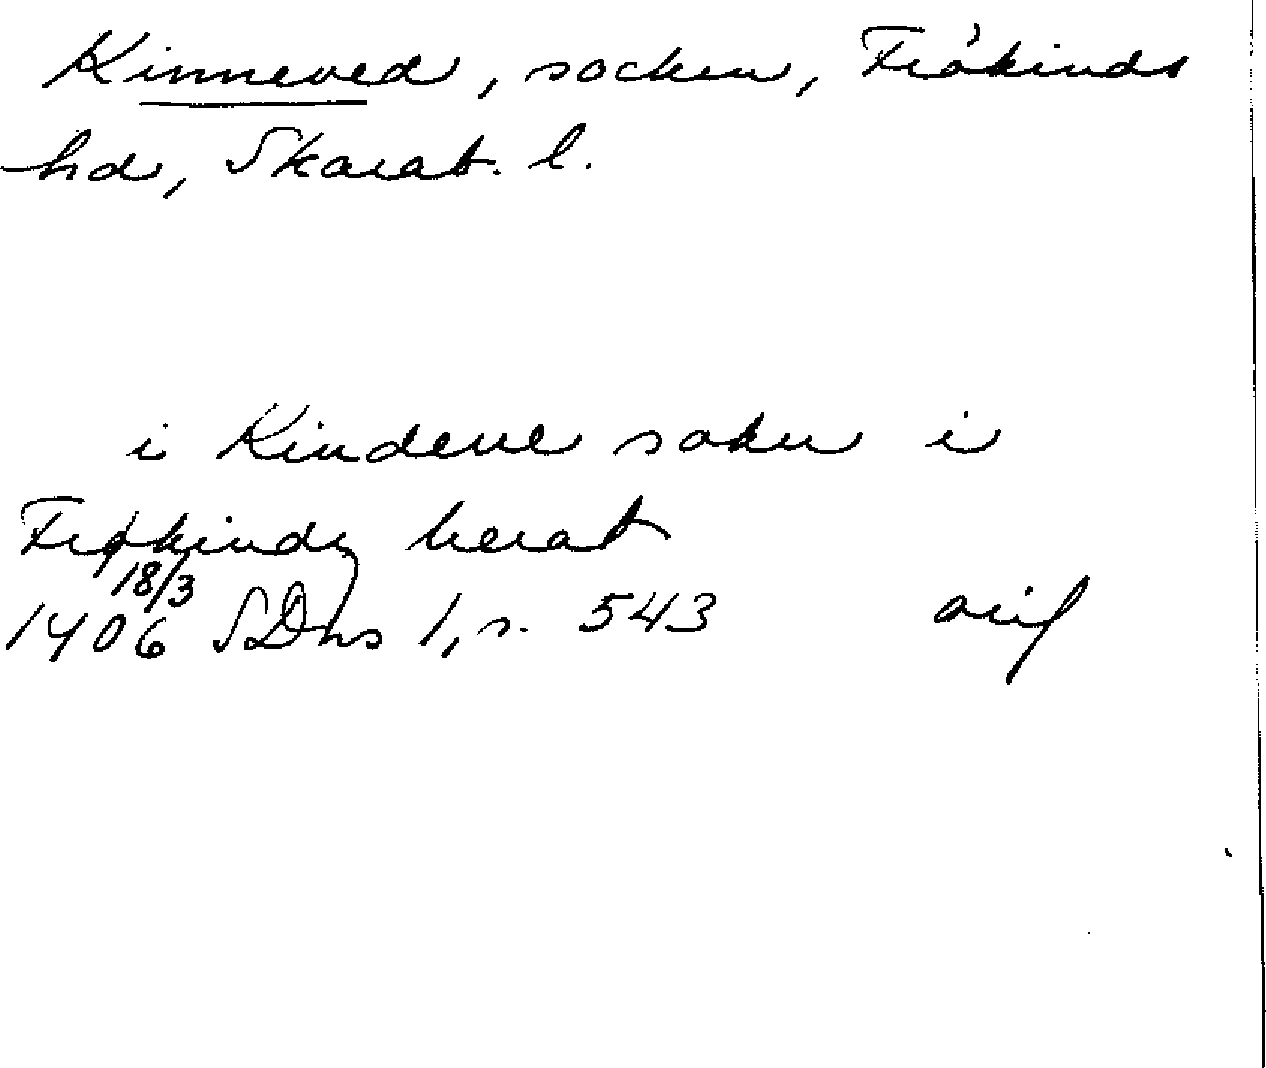 Kinneved, socken, Frökinds
hd, Skarab. l.
i Kindeue sokn i
Frøkindz herat
18/3
1406 SDns 1, s. 543 orif